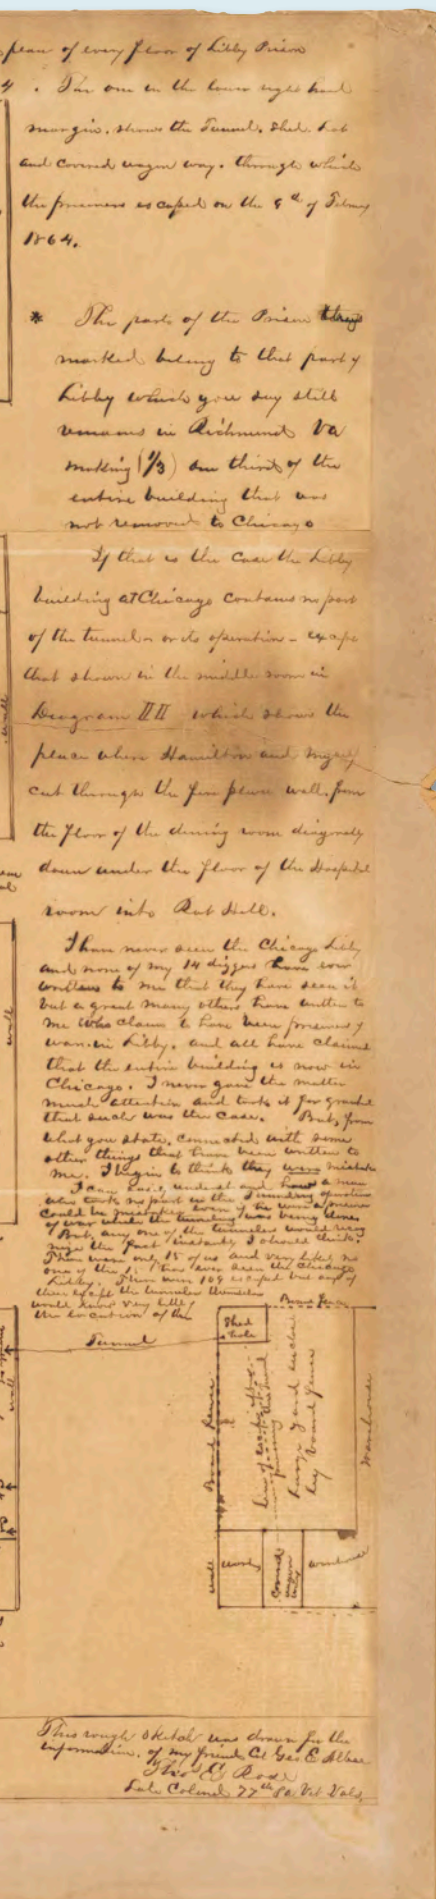 plan of every floor of Libby Prison
4 . The one in the lower right hand
margin, shows the Tunnel, Shed, Lot
and covered wagon way, through which
the prisoners escaped on the 9th of Febuary
1864.
* The parts of the Prison thus
marked belong to that part of
Libby which you say still
remains in Richmond Va
making (1/3) one third of the
entire building that was
not removed to Chicago
If that is the case the Libby
building at Chicago contains no part
of the tunnel or its operation - except
that shown in the middle room in
Diagram III which shows the
place where Hamilton and myself
cut through the fire place wall, from
the floor of the dining room diagonaly
down under the floor of the Hospital
room into Rat Hell.
I have never seen the Chicago Libby
and none of my 14 diggers have ever
written to me that they have seen it
but a great many others have written to
me who claim to have been prisoners of
war in Libby, and all have claimed
that the entire building is now in
Chicago. I never gave the matter
much attention and took it for granted
that such was the case. But, from
what you state, connected with some
other things that have been written to
me. I begin to think they were mistaken
I can easily understand how a man
who took no part in the Tunneling operations
could be mistaken even if he was a prisoner
of war while the tunneling was being done.
But, any one of the tunnelers would
the fact instantly I should think.
There were only 15 of us and very likely no
one of the 15 has ever seen the Chicago
Libby. There were 109 escaped but any of
them except the tunnelers themselves
would know very little of
the location of the
Tunnel
Board fence
Shed
hole
Board fence
Line of
large yard enclosed
by board fence
Warehouse
wall
wall
covered
wagon
way
warehouse
wall
wall
wall
This rough sketch was drawn for the
information, of my friend Col Geo E Albee
Thos E Rose
Late Colonel 77th Pa Vet Vols.